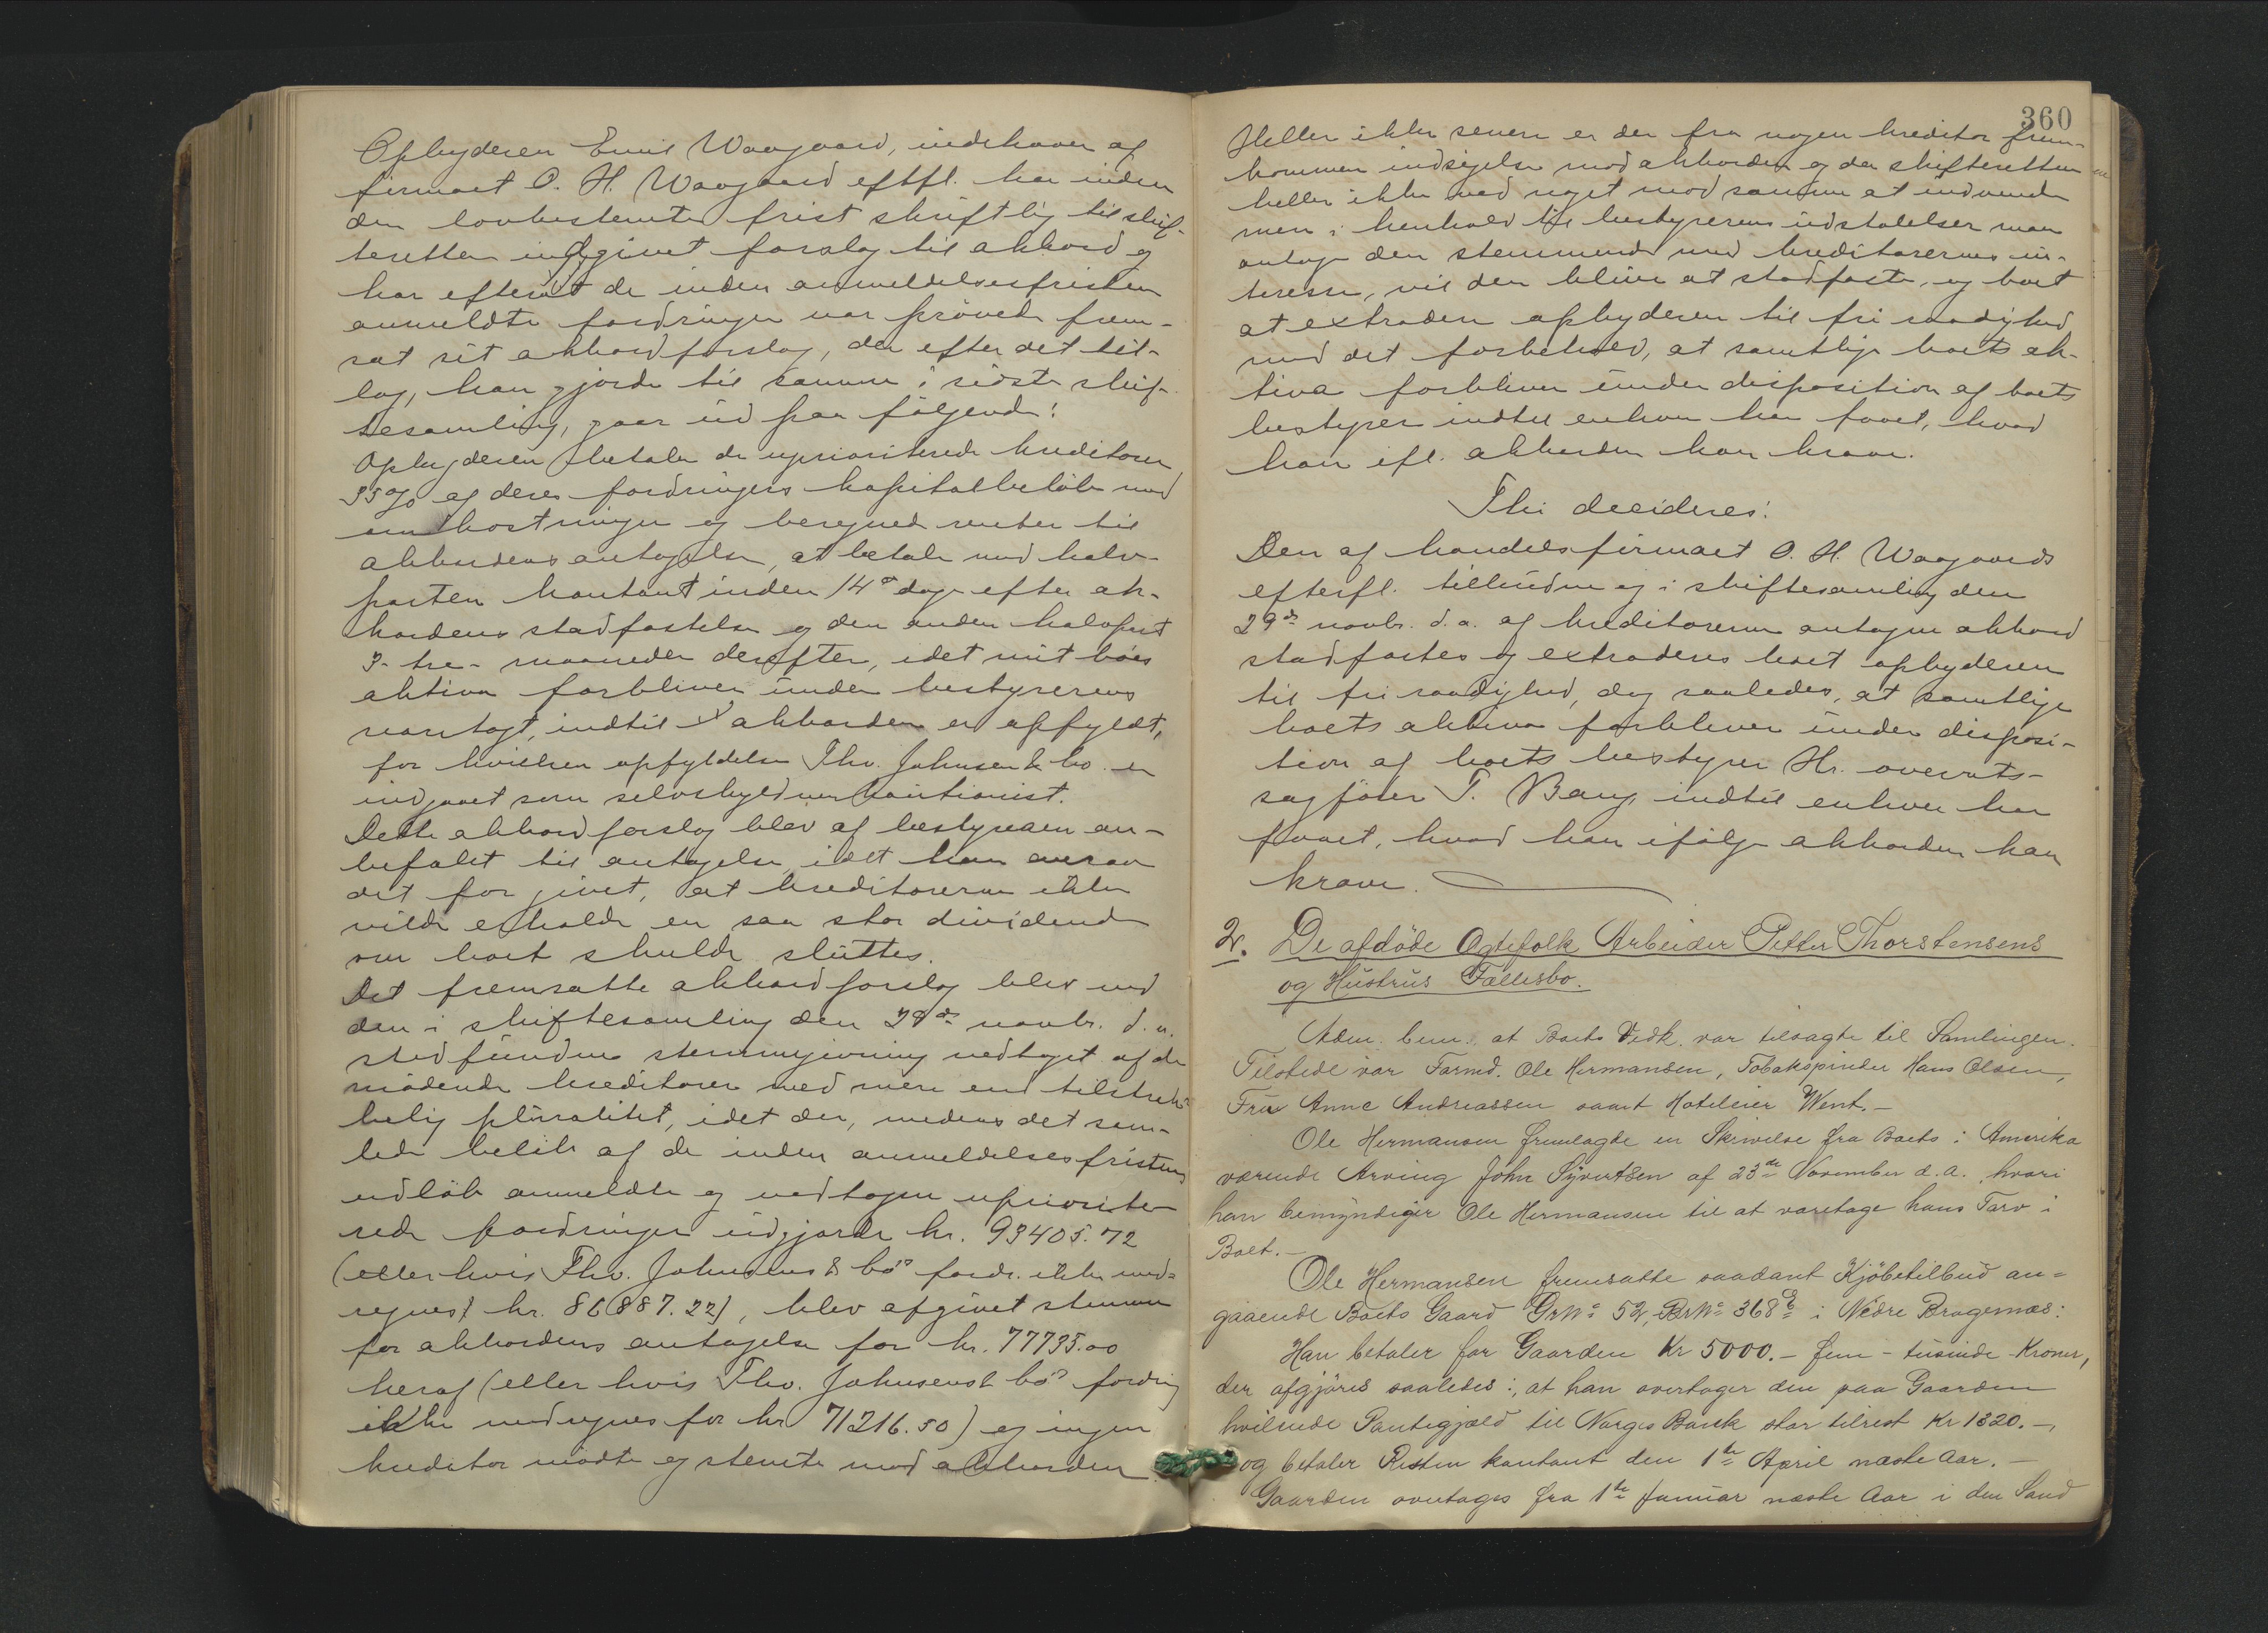 Opbyderen Emil Waagaard, indehaver af
firmaet O. H. Waagaard eftfl. har inden
den lovbestemte frist skriftlig til skif-
teretten indgivet forslag til akkord og
har efterat de inden anmeldelsesfristen
anmeldte fordringer var prøvede frem-
sat sit akkordforslag, der efter det til-
læg, han gjorde til samme i sidste skif-
tesamling, gaar ud paa følgende:
Opbyderen betaler de uprioriterede kreditorer
35 % af deres fordringers kapitalbeløb med
omkostninger og beregnede renter til
akkordens antagelse, at betale med halv-
parten kontant inden 14 dage efter ak-
kordens stadfæstelse og den anden halvpart
3 - tre - maaneder derefter, idet mit boes
aktiva forbliver under bestyrerens
varetægt, indtil akkorden er opfyldt,
for hvilken opfyldelse Thv. Johnsen & Co. er
indgaaet som selvskyldnerkautionist.
Dette akkordforslag blev af bestyreren an-
befalet til antagelse, idet han ansaa
det for givet, at kreditorerne ikke
vilde erholde en saa stor dividende
om boet skulde sluttes.
Det fremsatte akkordforslag blev ved
den i skiftesamling den 29de novbr. d. a.
stedfundne stemmegivning vedtaget af de
mødende kreditorer med mere end tilstræk-
kelig pluralitet, idet der, medens det sam-
lede beløb af de inden anmeldelsesfristens
udløb anmeldte og vedtagne upriorite-
rede fordringer udgjorde kr. 93405.72
(eller hvis Thv. Johnsens & Co's fordr. ikke med-
regnes kr. 86887.22), blev afgivet stemmer
for akkordens antagelse for kr. 77735.00
heraf (eller hvis Thv. Johnsens & Co's fordring
ikke medregnes for kr 71216.50) og ingen
kreditor mødte og stemte mod akkorden.
360
Heller ikke senere er der fra nogen kreditor frem-
kommen indsigelse mod akkorden og da skifteretten
heller ikke ved noget mod samme at indvende
men i henhold til bestyrerens udtalelser maa
antage den stemmende med kreditorernes in-
teresse, vil den blive at stadfæste, og boet
at extradere opbyderen til fri raadighed
med det forbehold, at samtlige boets ak-
tiva forbliver under disposition af boets
bestyrer indtil enhver har faaet, hvad
han ifl. akkorden kan kræve.
Thi decideres:
Den af handelsfirmaet O. H. Waagaards
efterfl. tilbudne og i skiftesamling den
29de novbr. d. a. af kreditorerne antagne akkord
stadfæstes og extraderes boet opbyderen
til fri raadighed, dog saaledes, at samtlige
boets aktiva forbliver under disposi-
tion af boets bestyrer Hr. overrets-
sagfører T. Bang, indtil enhver har
faaet, hvad han ifølge akkorden kan
kræve.
2. De afdøde Ægtefolk Arbeider Petter Thorstensens
og Hustrus Fællesbo.
Adm. bem. at Boets Vedk. var tilsagte til Samlingen.
Tilstede var Formd. Ole Hermansen, Tobakspinder Hans Olsen,
Fru Anne Andreassen samt Hoteleier Went.-
Ole Hermansen fremlagde en Skrivelse fra Boets i Amerika
værende Arving John Syvertsen af 23de November d.a., hvori
han bemyndiger Ole Hermansen til at varetage hans Tarv i
Boet.-
Ole Hermansen fremsatte saadant Kjøbetilbud an=
gaaende Boets Gaard GrNo 52, BrNo 368 i Nedre Bragernæs:
Han betaler for Gaarden Kr 5000.- fem-tusinde Kroner,
der afgjøres saaledes:, at han overtager den paa Gaarden
hvilende Pantegjæld til Norges Bank stor tilrest Kr 1320.-,
og betaler Resten kontant den 1te April næste Aar.-
Gaarden overtages fra 1te Januar næste Aar i den Stand